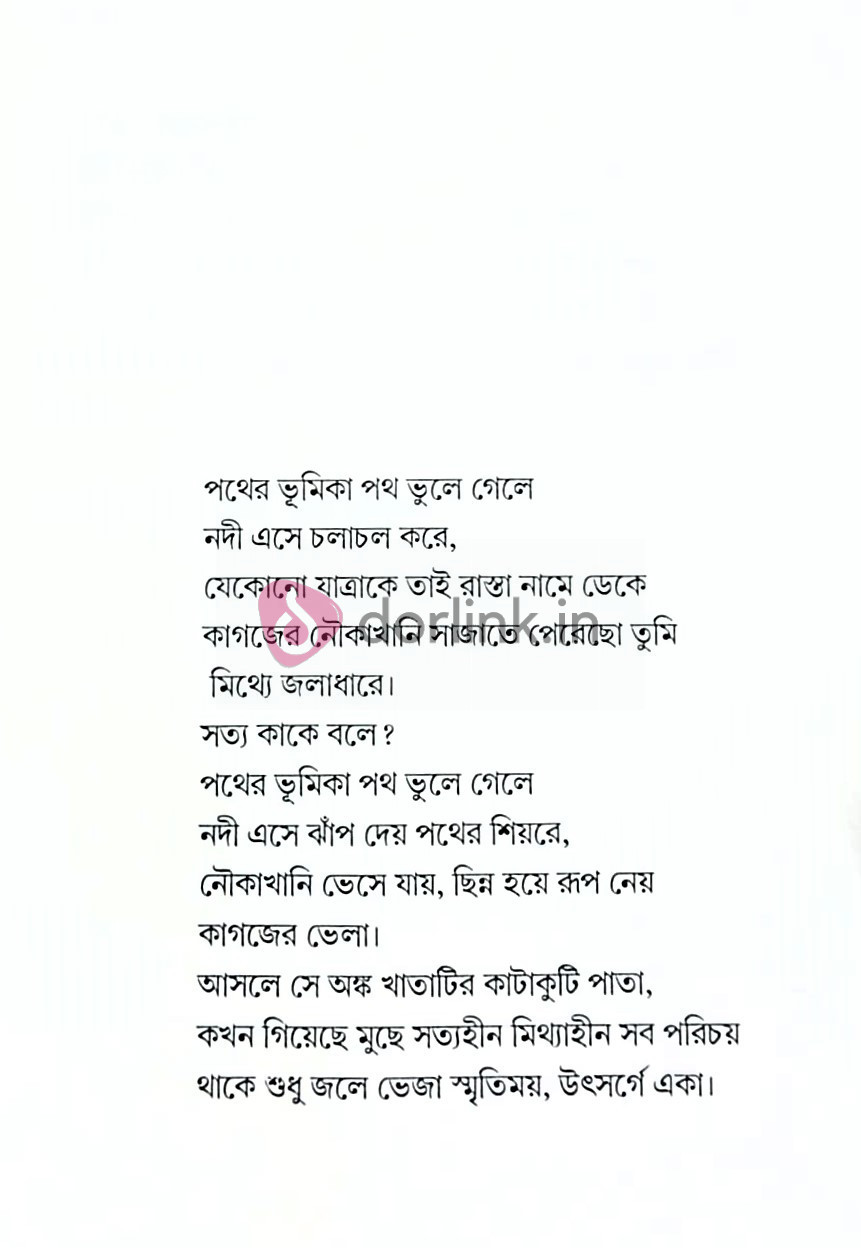 পথের ভূমিকা পথ ভুলে গেলে
নদী এসে চলাচল করে,
যেকোনো যাত্রাকে তাই রাস্তা নামে ডেকে
কাগজের নৌকাখানি সাজাতে পেরেছো তুমি
dorlink.in
মিথ্যে জলাধারে।
সত্য কাকে বলে?
পথের ভূমিকা পথ ভুলে গেলে
নদী এসে ঝাঁপ দেয় পথের শিয়রে,
নৌকাখানি ভেসে যায়, ছিন্ন হয়ে রূপ নেয়
কাগজের ভেলা।
আসলে সে অঙ্ক খাতাটির কাটাকুটি পাতা,
কখন গিয়েছে মুছে সত্যহীন মিথ্যাহীন সব পরিচয়
থাকে শুধু জলে ভেজা স্মৃতিময়, উৎসর্গে একা।